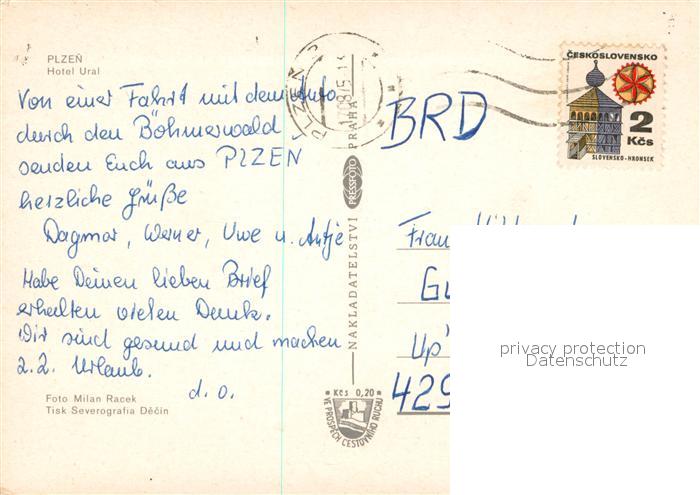 PLZEŇ
Hotel Ural
Von einer Fahrt mit dem Auto
durch den Böhmerwald
senden Euch aus PLZEN
herzliche Grüße
Dagmar, Werner, Uwe u. Antje
Habe Deinen lieben Brief
erhalten vielen Dank.
Wir sind gesund und machen
z.Z. Urlaub.
d. o.
Foto Milan Racek
Tisk Severografia Děčín
NAKLADATELSTVÍ PRESSFOTO PRAHA
Kčs 0,20
VE PROSPĚCH CESTOVNÍHO RUCHU
PLZEŇ
ČESKOSLOVENSKO
2
Kčs
SLOVENSKO-HRONSEK
BRD
Up'
429
privacy protection
Datenschutz